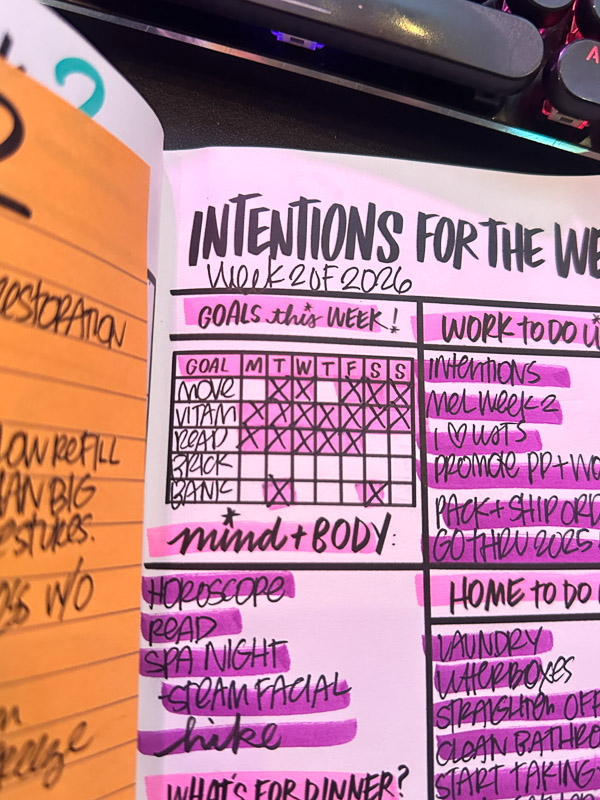 RESTORATION
REFILL
BIG
W/O
INTENTIONS FOR THE WE
Week 2 OF 2026
GOALS this WEEK!
GOAL M T W T F S S
MOVE X X X X X
VITAM X X X X X X X
READ X X X X X
BRICK
BANK X X
mind + BODY:
HOROSCOPE
READ
SPA NIGHT
-STEAM FACIAL
hike
WHAT'S FOR DINNER?
WORK to DO
INTENTIONS
MEL WEEK 2
I ♡ LISTS
PROMOTE PP + WO
PACK + SHIP ORD
GO THRU 2025
HOME to DO
LAUNDRY
LITTERBOXES
STRAIGHTEN OFF
CLEAN BATHRO
START TAKING